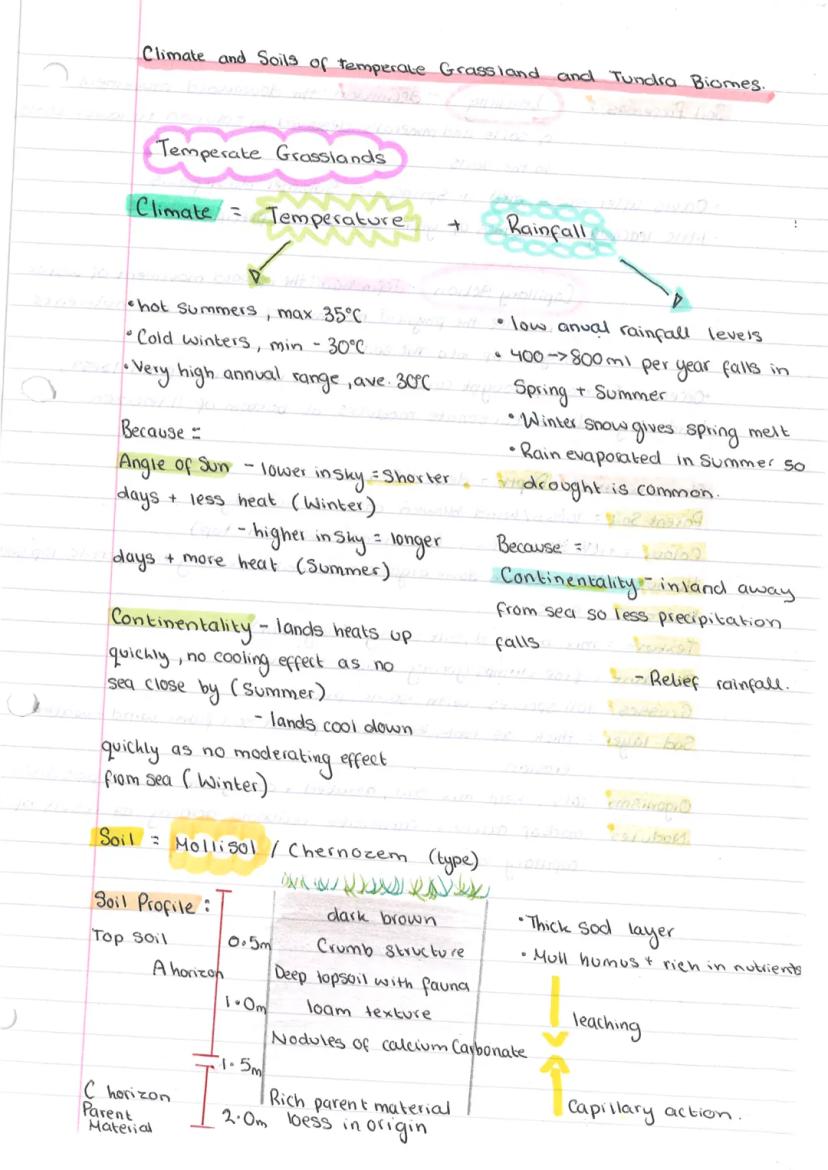 Climate and Soils of temperate Grassland and Tundra Biomes.
Temperate Grasslands
Climate = Temperature + Rainfall
• hot summers, max 35°C
• Cold winters, min - 30°C
• Very high annual range, ave. 30°C
Because =
Angle of Sun - lower in sky = Shorter
days + less heat (Winter)
- higher in Sky = longer
days + more heat (Summer)
Continentality - lands heats up
quickly, no cooling effect as no
sea close by (Summer)
- lands cool down
quickly as no moderating effect
from sea (Winter)
• low anual rainfall levels
• 400 -> 800ml per year falls in
Spring + Summer
• Winter snow gives spring melt
• Rain evaporated in Summer so
drought is common.
Because =
Continentality - inland away
from sea so less precipitation
falls
- Relief rainfall.
Soil = Mollisol / Chernozem (type)
Soil Profile :
Top soil
A horizon
C horizon
Parent
Material
0.5m
1.0m
1.5m
2.0m
dark brown
Crumb structure
Deep topsoil with fauna
loam texture
Nodules of calcium Carbonate
Rich parent material
loess in origin
• Thick sod layer
• Mull humus + rich in nutrients
leaching
Capillary action.